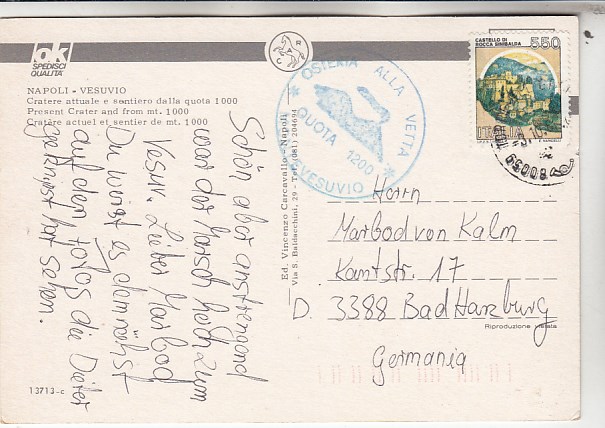 ok
SPEDISCI
QUALITÀ
NAPOLI - VESUVIO
Cratere attuale e sentiero dalla quota 1000
Present Crater and from mt. 1000
Cratère actuel et sentier de mt. 1000
Schön, aber anstrengend
war der Marsch heute zum
Vesuv. Lieber Marbod
Du wirst es demnächst
auf den Fotos die Dieter
geknipst hat sehen.
13713-c
Ed. Vincenzo Carcavallo - Napoli
Via S. Baldacchini, 29 - Tel. (081) 204694
CAR
* OSTERIA ALLA VETTA *
QUOTA 1200
VESUVIO
CASTELLO DI
ROCCA SINIBALDA
550
ITALIA
Herrn
Marbod von Kalm
Kantstr. 17
D. 3388 Bad Harzburg
Riproduzione vietata
Germania